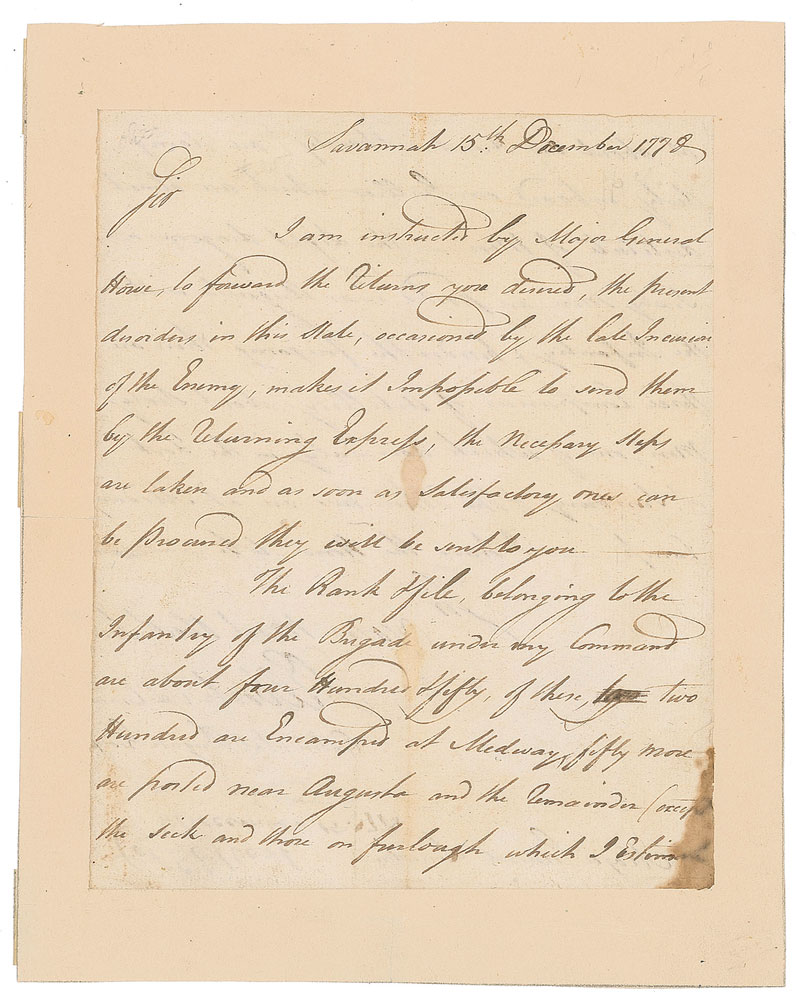 Savannah 15th. December 1778
Sir
I am instructed by Major General
Howe, to forward the Returns you desired, the present
disorders in this State, occasioned by the late Incursion
of the Enemy, makes it Impossible to send them
by the Returning Express, the Necessary Steps
are taken and as soon as Satisfactory ones can
be Procured they will be sent to you
The Rank & file, belonging to the
Infantry of the Brigade under my Command
are about four Hundred & fifty, of these, two
Hundred are Encamped at Medway, fifty more
are posted near Augusta and the Remainder (except
the sick and those on furlough which I Estim